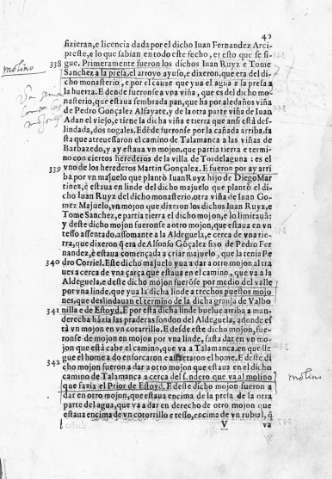 42
fizieran, e licencia dada por el dicho Iuan Fernandez Arci
preste, e lo que sabian en todo este fecho, es esto que se si-
gue. Primeramente fueron los dichos Iuan Ruyz e Tome
338
Sanchez a la presa, el arroyo ayuso, e dixeron, que era del di-
molino
cho monasterio, e por el cauze que yua el agua a la presa a
la huerta. E dende fueronse a vna viña, que es del dicho mo
nasterio, que estaua sembrada pan, que ha por aledaños viña
de Pedro Gonçalez Alfayate, y de la otra parte viña de Iuan
Adan el viejo, e tiene la dicha viña e tierra que ansi està des-
lindada, dos nogales. Edēde fuerōse por la cañada arriba, fa
sta que atreuessaron el camino de Talamanca a las viñas de
Barbazedo, y ay estaua vn mojon, que partia tierra e termi-
no con ciertos herederos de la villa de Tordelaguna: es el
339
vno de los herederos Martin Gonçalez. E fueron por ay arri
ba por vn majuelo que plantò Iuan Ruyz hijo de Diego Mar
tinez, è estaua en linde del dicho majuelo que plantò el di-
cho Iuan Ruyz del dicho monasterio, otra viña de Iuan Go-
mez Majuelo, vn mojon que dixeron los dichos Iuan Ruyz, e
Tome Sanchez, e partia tierra el dicho mojon, e lo limitauā:
y deste dicho mojon fueronse a otro mojon, que estaua en vn
tesso assentado, assomante a la Aldeguela, e cerca de vna tie-
rra, que dixeron q̃ era de Alfonso Gōçalez fijo de Pedro Fer
nandez, è estaua començada a criar majuelo, que la tenia Pe
340
dro Corriel. Este dicho majuelo yua a dar a otro mojon al tra
ues a cerca de vna çarça que estaua en el camino, que va a la
Aldeguela, e deste dicho mojon fuerōse por medio del valle
por vna linde, que yua la dicha linde a trechos puestos mojo
nes, que deslindauan el termino de la dicha granja de Valbo
341
nilla e de Estoyd. E por esta dicha linde buelue arriba a man-
derecha hasta las praderas fondon del Aldeguela, adonde es
tà vn mojon en vn cotarrillo. E desde este dicho mojon, fue-
ronse de mojon en mojon por vna linde, fasta dar en vn mo-
jon que està cabe el camino, que va a Talamanca, en que sie-
gue el home ado enforcaron e assetaron el home. E deste di
342
cho mojon fueron a dar a otro mojon que estaua en el dicho
camino de Talamanca a cerca del sendero que va al molino
molino
que fazia el Prior de Estoyd. E deste dicho mojon fueron a
dar en otro mojon, que estaua encima de la presa de la otra
parte del agua, que va a dar en derecho de otro mojon que
estaua encima de vn cotarrillo e tesso, encima de vn rubial, q̃
V va